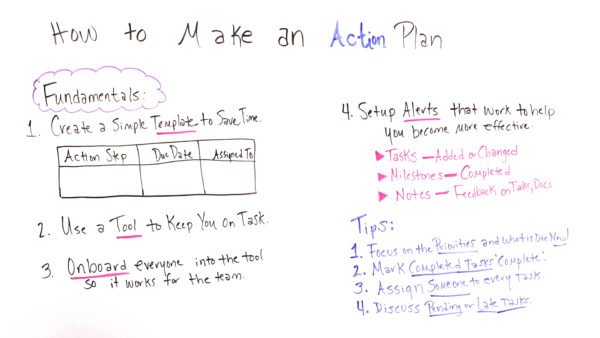 How to Make an Action Plan
Fundamentals:
1. Create a Simple Template to Save Time.
Action Step Due Date Assigned To
2. Use a Tool to Keep You on Task.
3. Onboard everyone into the tool
so it works for the team.
4. Setup Alerts that work to help
you become more effective.
▶Tasks — Added or Changed
▶Milestones — Completed
▶Notes — Feedback on Tasks, Docs
Tips:
1. Focus on the Priorities and what is Due Now!
2. Mark Completed Tasks "Complete".
3. Assign Someone to every Task.
4. Discuss Pending or Late Tasks.